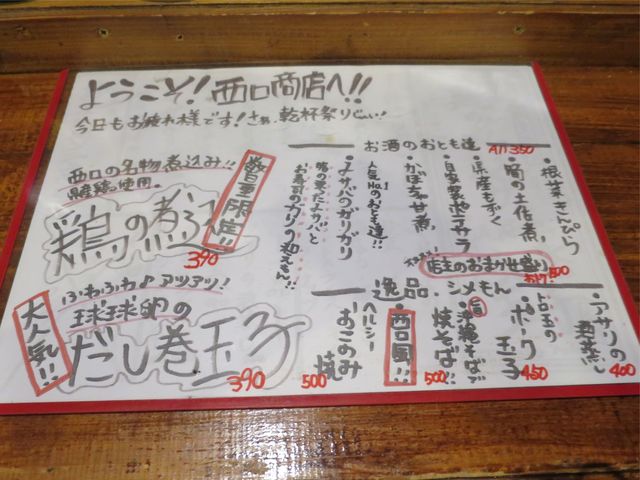 ようこそ!西口商店へ!!
今日もお疲れ様です!さぁ、乾杯祭りじゃい!
西口の名物煮込み!!
数量限定!!
鶏の煮込
390
ふわふわ♪アツアツ!
球球卵の
だし巻玉子
大人気!!
390
お酒のおとも達
All 350
・根菜きんぴら
・筍の土佐煮
・県産もずく
・自家製池ニサラ
・かぼちゃ甘煮
人気No.1のおとも達!!
・よサバのガリガリ
お寿司のガリの和えもん!!
店主のおまかせ盛り
500
逸品・シメもん
アサリの
酒蒸し
400
トロ玉の
ポーク
玉子
450
沖縄そばで
焼そば!!
500
西口風!!
ヘルシー
おこのみ
焼
500